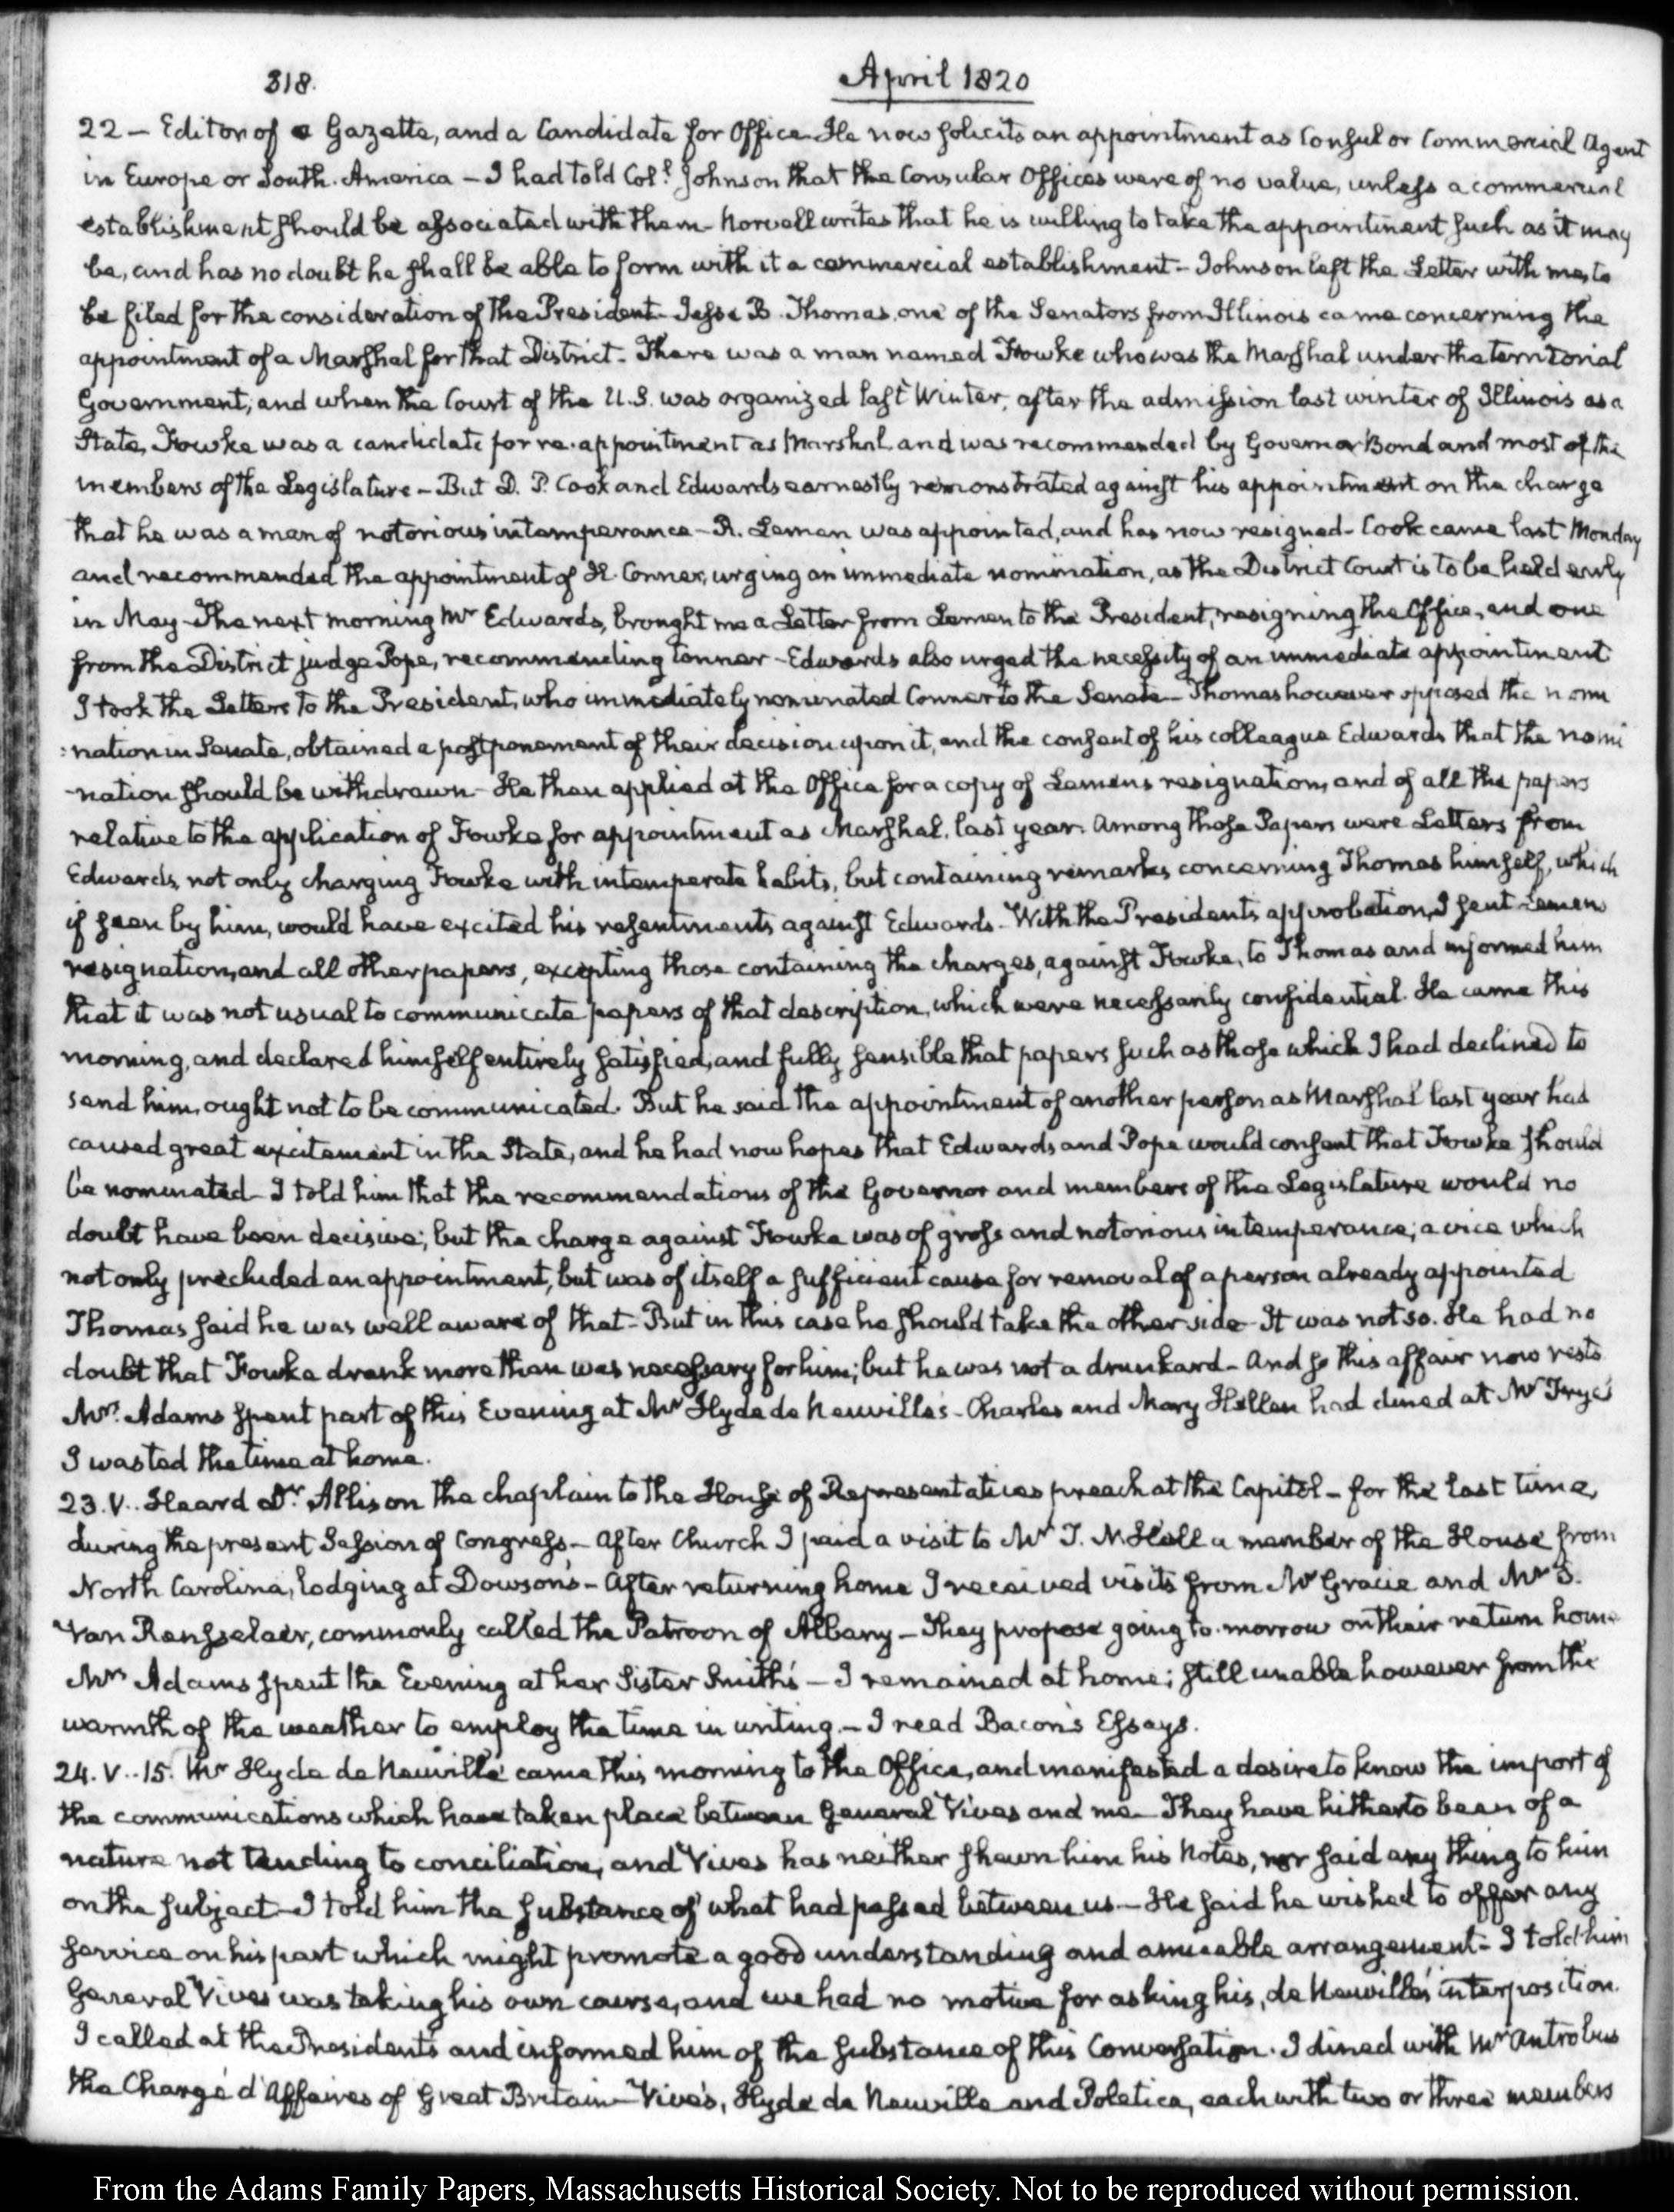 318.
April 1820
22 – Editor of a Gazette, and a Candidate for Office. He now solicits an appointment as Consul or Commercial Agent
in Europe or South. America – I had told Col.l Johnson that the Consular Offices were of no value, unless a commercial
establishment should be associated with them – Norvell writes that he is willing to take the appointment such as it may
be, and has no doubt he shall be able to form with it a commercial establishment – Johnson left the Letter with me, to
be filed for the consideration of the President – Jesse B. Thomas, one of the Senators from Illinois came concerning the
appointment of a Marshal for that District – There was a man named Fowke who was the Marshal under the territorial
Government, and when the Court of the U.S. was organized last Winter, after the admission last winter of Illinois as a
State, Fowke was a candidate for re-appointment as Marshal and was recommended by Governor Bond and most of the
members of the Legislature – But D. P. Cook and Edwards earnestly remonstrated against his appointment on the charge
that he was a man of notorious intemperance – R. Lemen was appointed, and has now resigned – Cook came last Monday
and recommended the appointment of H. Conner, urging an immediate nomination, as the District Court is to be held early
in May – The next morning Mr Edwards, brought me a Letter from Lemen to the President, resigning the Office, and one
from the District judge Pope, recommending Conner – Edwards also urged the necessity of an immediate appointment
I took the Letters to the President, who immediately nominated Conner to the Senate – Thomas however opposed the nomi
:nation in Senate, obtained a postponement of their decision upon it, and the consent of his colleague Edwards that the nomi
-nation should be withdrawn – He then applied at the Office for a copy of Lemens resignation, and of all the papers
relative to the application of Fowke for appointment as Marshal, last year. Among those Papers were Letters from
Edwards, not only charging Fowke with intemperate habits, but containing remarks concerning Thomas himself, which
if seen by him, would have excited his resentments against Edwards – With the Presidents approbation, I sent Lemens
resignation, and all other papers, excepting those containing the charges, against Fowke, to Thomas and informed him
that it was not usual to communicate papers of that description, which were necessarily confidential. He came this
morning, and declared himself entirely satisfied, and fully sensible that papers such as those which I had declined to
send him, ought not to be communicated. But he said the appointment of another person as Marshal last year had
caused great excitement in the State, and he had now hopes that Edwards and Pope would consent that Fowke should
be nominated – I told him that the recommendations of the Governor and members of the Legislature would no
doubt have been decisive; but the charge against Fowke was of gross and notorious intemperance; a vice which
not only precluded an appointment, but was of itself a sufficient cause for removal of a person already appointed
Thomas said he was well aware of that – But in this case he should take the other side – It was not so. He had no
doubt that Fowke drank more than was necessary for him; but he was not a drunkard – And so this affair now rests
Mrs. Adams spent part of this Evening at Mr Hyde de Neuville's – Charles and Mary Hellen had dined at Mr Frye's
I wasted the time at home.
23. V.. Heard Dr. Allison the chaplain to the House of Representatives preach at the Capitol – for the last time,
during the present Session of Congress – After Church I paid a visit to Mr T. H Hall a member of the House from
North Carolina, lodging at Dowson's – After returning home I received visits from Mr Gracie and Mr S.
Van Rensselaer, commonly called the Patroon of Albany – They propose going to-morrow on their return home
Mrs Adams spent the Evening at her Sister Smith's – I remained at home; still unable however from the
warmth of the weather to employ the time in writing – I read Bacon's Essays.
24. V..15. Mr Hyde de Neuville came this morning to the Office, and manifested a desire to know the import of
the communications which have taken place between General Vives and me – They have hitherto been of a
nature not tending to conciliation, and Vives has neither shewn him his Notes, nor said any thing to him
on the subject – I told him the substance of what had passed between us – He said he wished to offer any
service on his part which might promote a good understanding and amicable arrangement – I told him
General Vives was taking his own course, and we had no motive for asking his, de Neuville's interposition.
I called at the President's and informed him of the substance of this Conversation. I dined with Mr Antrobus
the Chargé d'Affaires of Great Britain – Vives, Hyde de Neuville and Poletica, each with two or three members
From the Adams Family Papers, Massachusetts Historical Society. Not to be reproduced without permission.